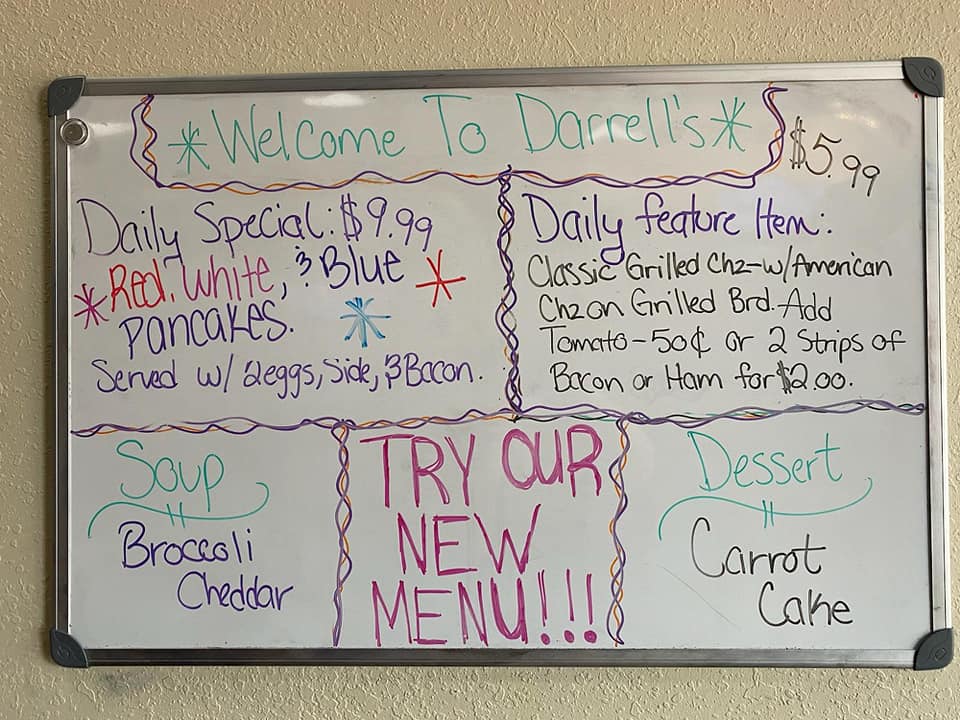 *Welcome To Darrell's*
Daily Special: $9.99
*Red, White, & Blue *
Pancakes. *
Served w/ 2eggs, Side, & Bacon.
$5.99
Daily feature Item:
Classic Grilled Chz-w/American
Chz on Grilled Brd. Add
Tomato-50¢ or 2 Strips of
Bacon or Ham for $2.00.
Soup
Broccoli
Cheddar
TRY OUR
NEW
MENU!!!
Dessert
Carrot
Cake